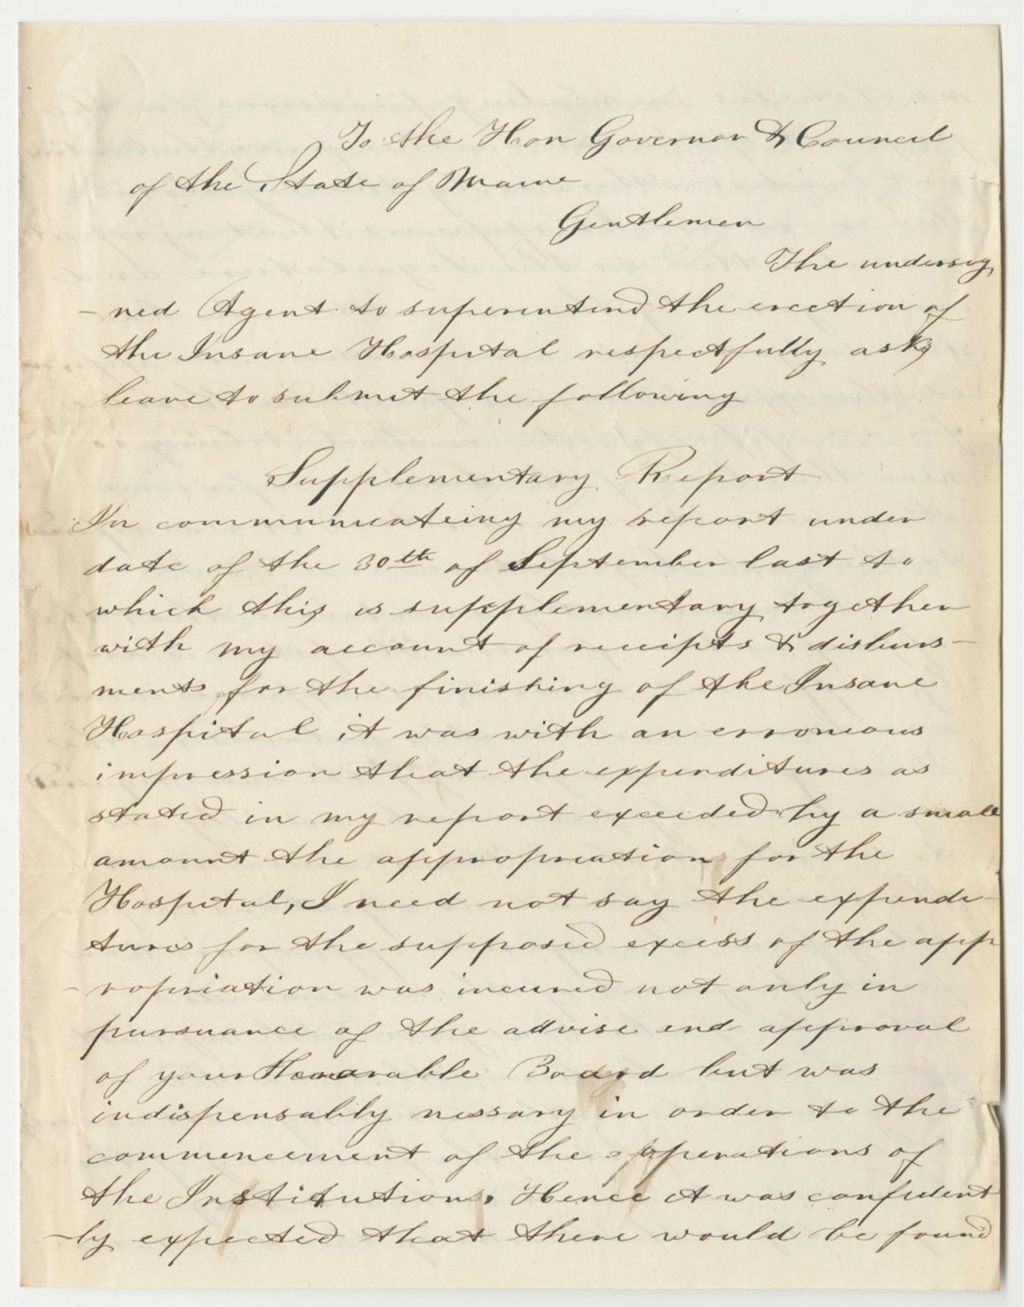 To the Hon Governor & Council
of the State of Maine
Gentlemen
The undersig
-ned Agent to superentend the erection of
the Insane Hospital respectfully asks
leave to submit the following
Supplementary Report
In communicateing my report under
date of the 30th of September last to
which this is supplementary together
with my account of receipts & disburs-
ments for the finishing of the Insane
Hospital it was with an erroneous
impression that the expenditures as
stated in my report exceeded by a small
amount the appropriation for the
Hospital, I need not say the expendi-
tures for the supposed excess of the app
-ropriation was incured not only in
pursuance of the advise and approval
of your Honorable Board but was
indispensably nessary in order to the
commencement of the operations of
the Institution. Hence it was confident
-ly expected that there would be found